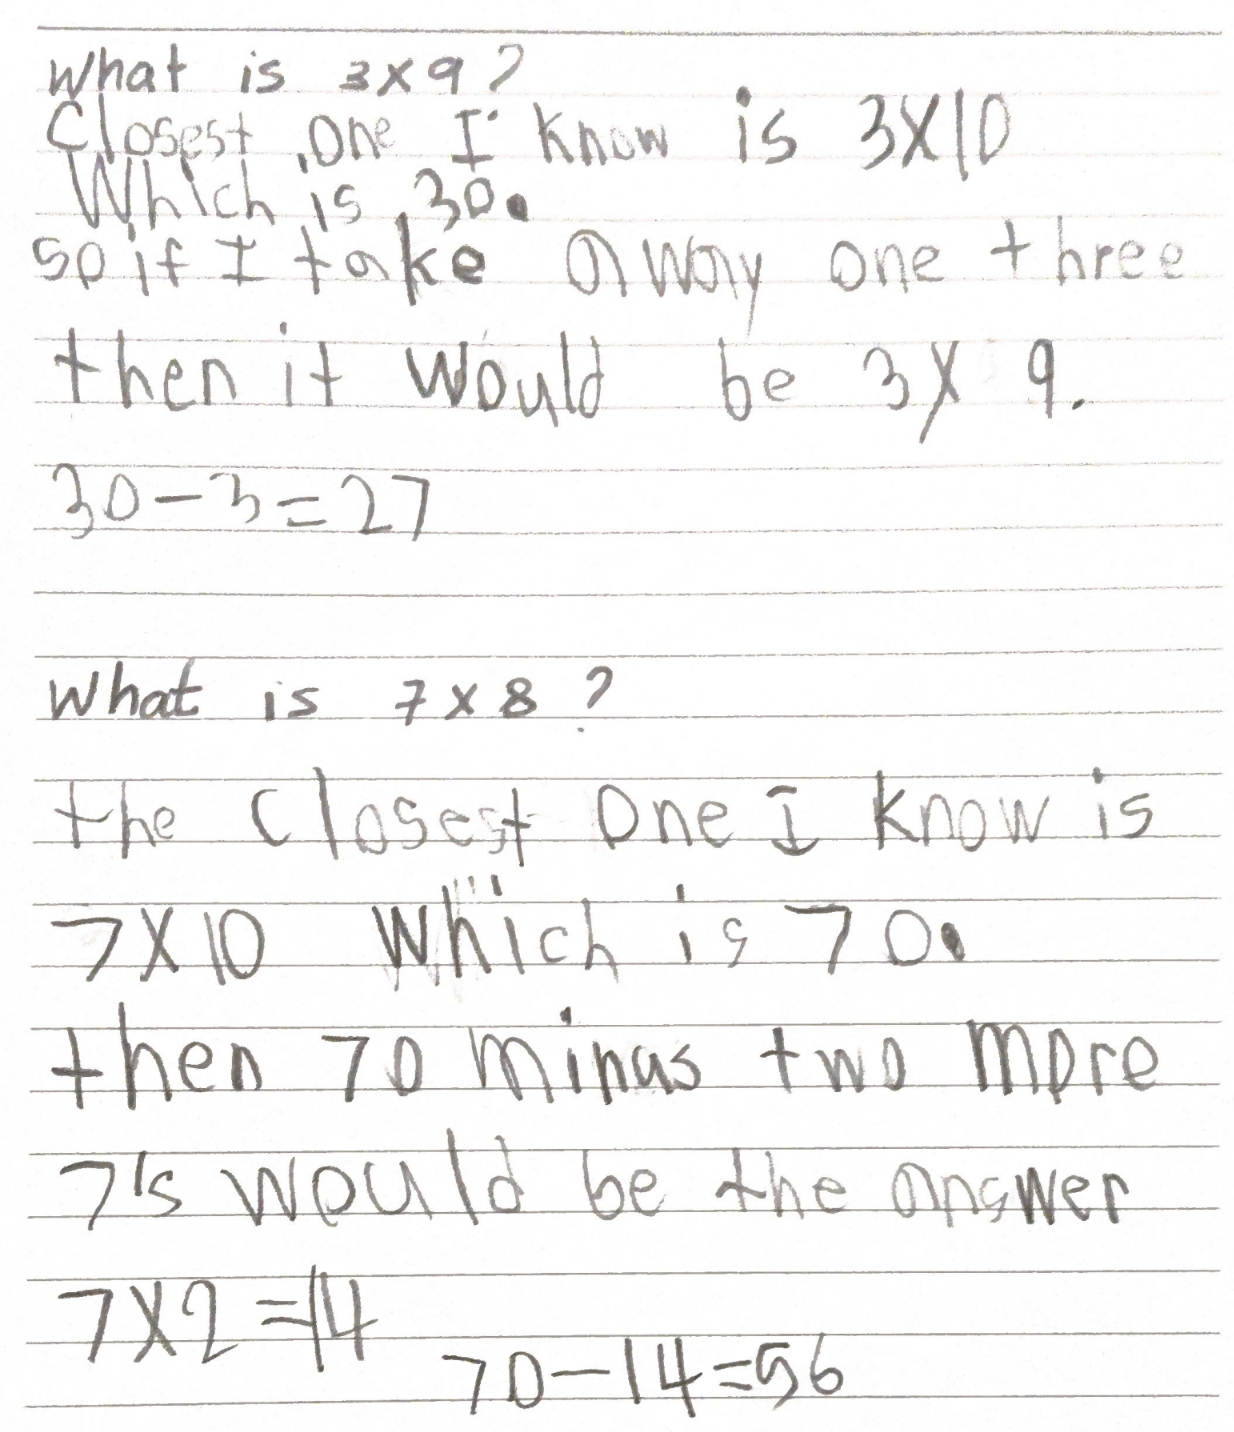 What is 3x9?
Closest one I know is 3X10
Which is 30.
so if I take away one three
then it would be 3X 9.
30-3=27
What is 7x8?
the Closest One I know is
7X10 Which is 70.
then 70 minas two more
7's would be the answer
7X2=14
70-14=56